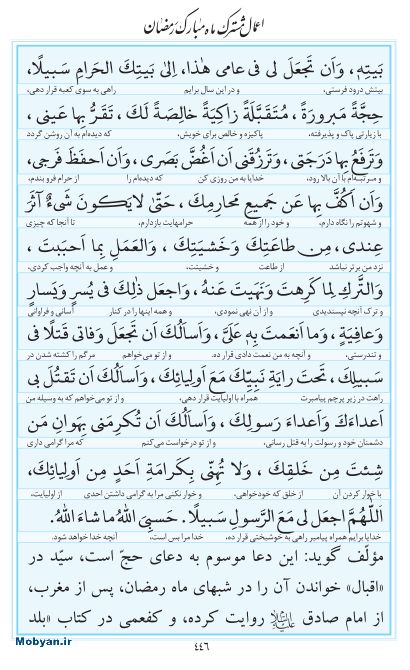 اعمال مشترک ماه مبارک رمضان
بَيتِهِ، وَاَن تَجعَلَ لى فى عامى هٰذا، اِلىٰ بَيتِكَ الحَرامِ سَبيلًا،
بيتش درود فرستی، و در این سال برایم راهی به سوی کعبه قرار دهی،
حِجَّةً مَبرورَةً، مُتَقَبَّلَةً زاكِيَةً خالِصَةً لَكَ، تَقَرُّ بِها عَينى،
با زیارتی پاک و پذیرفته، پاکیزه و خالص برای خویش، که دیده‌ام به آن روشن گردد
وَتَرفَعُ بِها دَرَجَتى، وَتَرزُقَنى اَن اَغُضَّ بَصَرى، وَاَن اَحفَظَ فَرجى،
و مرتبه‌ام با آن بالا رود، خدایا به من روزی کن که دیده‌ام را از حرام فرو بندم،
وَاَن اَكُفَّ بِها عَن جَميعِ مَحارِمِكَ، حَتّىٰ لايَكونَ شَىءٌ آثَرَ
و شهوتم را نگاه دارم، و خود را از همه حرامهایت بازدارم، تا آنجا که چیزی
عِندى، مِن طاعَتِكَ وَخَشيَتِكَ، وَالعَمَلِ بِما اَحبَبتَ،
نزد من برتر نباشد از طاعت و خشیتت، و عمل به آنچه واجب کردی،
وَالتَّركِ لِما كَرِهتَ وَنَهَيتَ عَنهُ، وَاجعَل ذٰلِكَ فى يُسرٍ وَيَسارٍ
و ترک آنچه نپسندیدی و از آن نهی نمودی، و همه اینها را در کنار آسانی و فراوانی
وَعافِيَةٍ، وَما اَنعَمتَ بِهِ عَلَىَّ، وَاَسأَلُكَ اَن تَجعَلَ وَفاتى قَتلًا فى
و تندرستی، و آنچه به من نعمت دادی قرار ده. و از تو می‌خواهم مرگم را کشته شدن در
سَبيلِكَ، تَحتَ رايَةِ نَبِيِّكَ مَعَ اَولِيائِكَ، وَاَسأَلُكَ اَن تَقتُلَ بى
راهت در زیر پرچم پیامبرت همراه با اولیایت قرار دهی، و از تو می‌خواهم که به وسیله من
اَعداءَكَ وَاَعداءَ رَسولِكَ، وَاَسأَلُكَ اَن تُكرِمَنى بِهَوانِ مَن
دشمنان خود و رسولت را به قتل رسانی، و از تو درخواست می‌کنم که مرا گرامی داری
شِئتَ مِن خَلقِكَ، وَلا تُهِنّى بِكَرامَةِ اَحَدٍ مِن اَولِيائِكَ،
با خوار کردن آن از خلق که خود خواهی، و خوار نکنی مرا به گرامی داشتن احدی از اولیایت،
اَللّٰهُمَّ اجعَل لى مَعَ الرَّسولِ سَبيلًا. حَسبِىَ اللهُ ما شاءَ اللهُ.
خدایا برایم همراه پیامبر راهی به خوشبختی قرار ده، خدا مرا بس است، آنچه خدا خواهد شود.
مؤلّف گوید: این دعا موسوم به دعای حجّ است، سیّد در
«اقبال» خواندن آن را در شبهای ماه رمضان، پس از مغرب،
از امام صادق علیه‌السلام روایت کرده، و کفعمی در کتاب «بلد
۴۴۶
Mobyan.ir